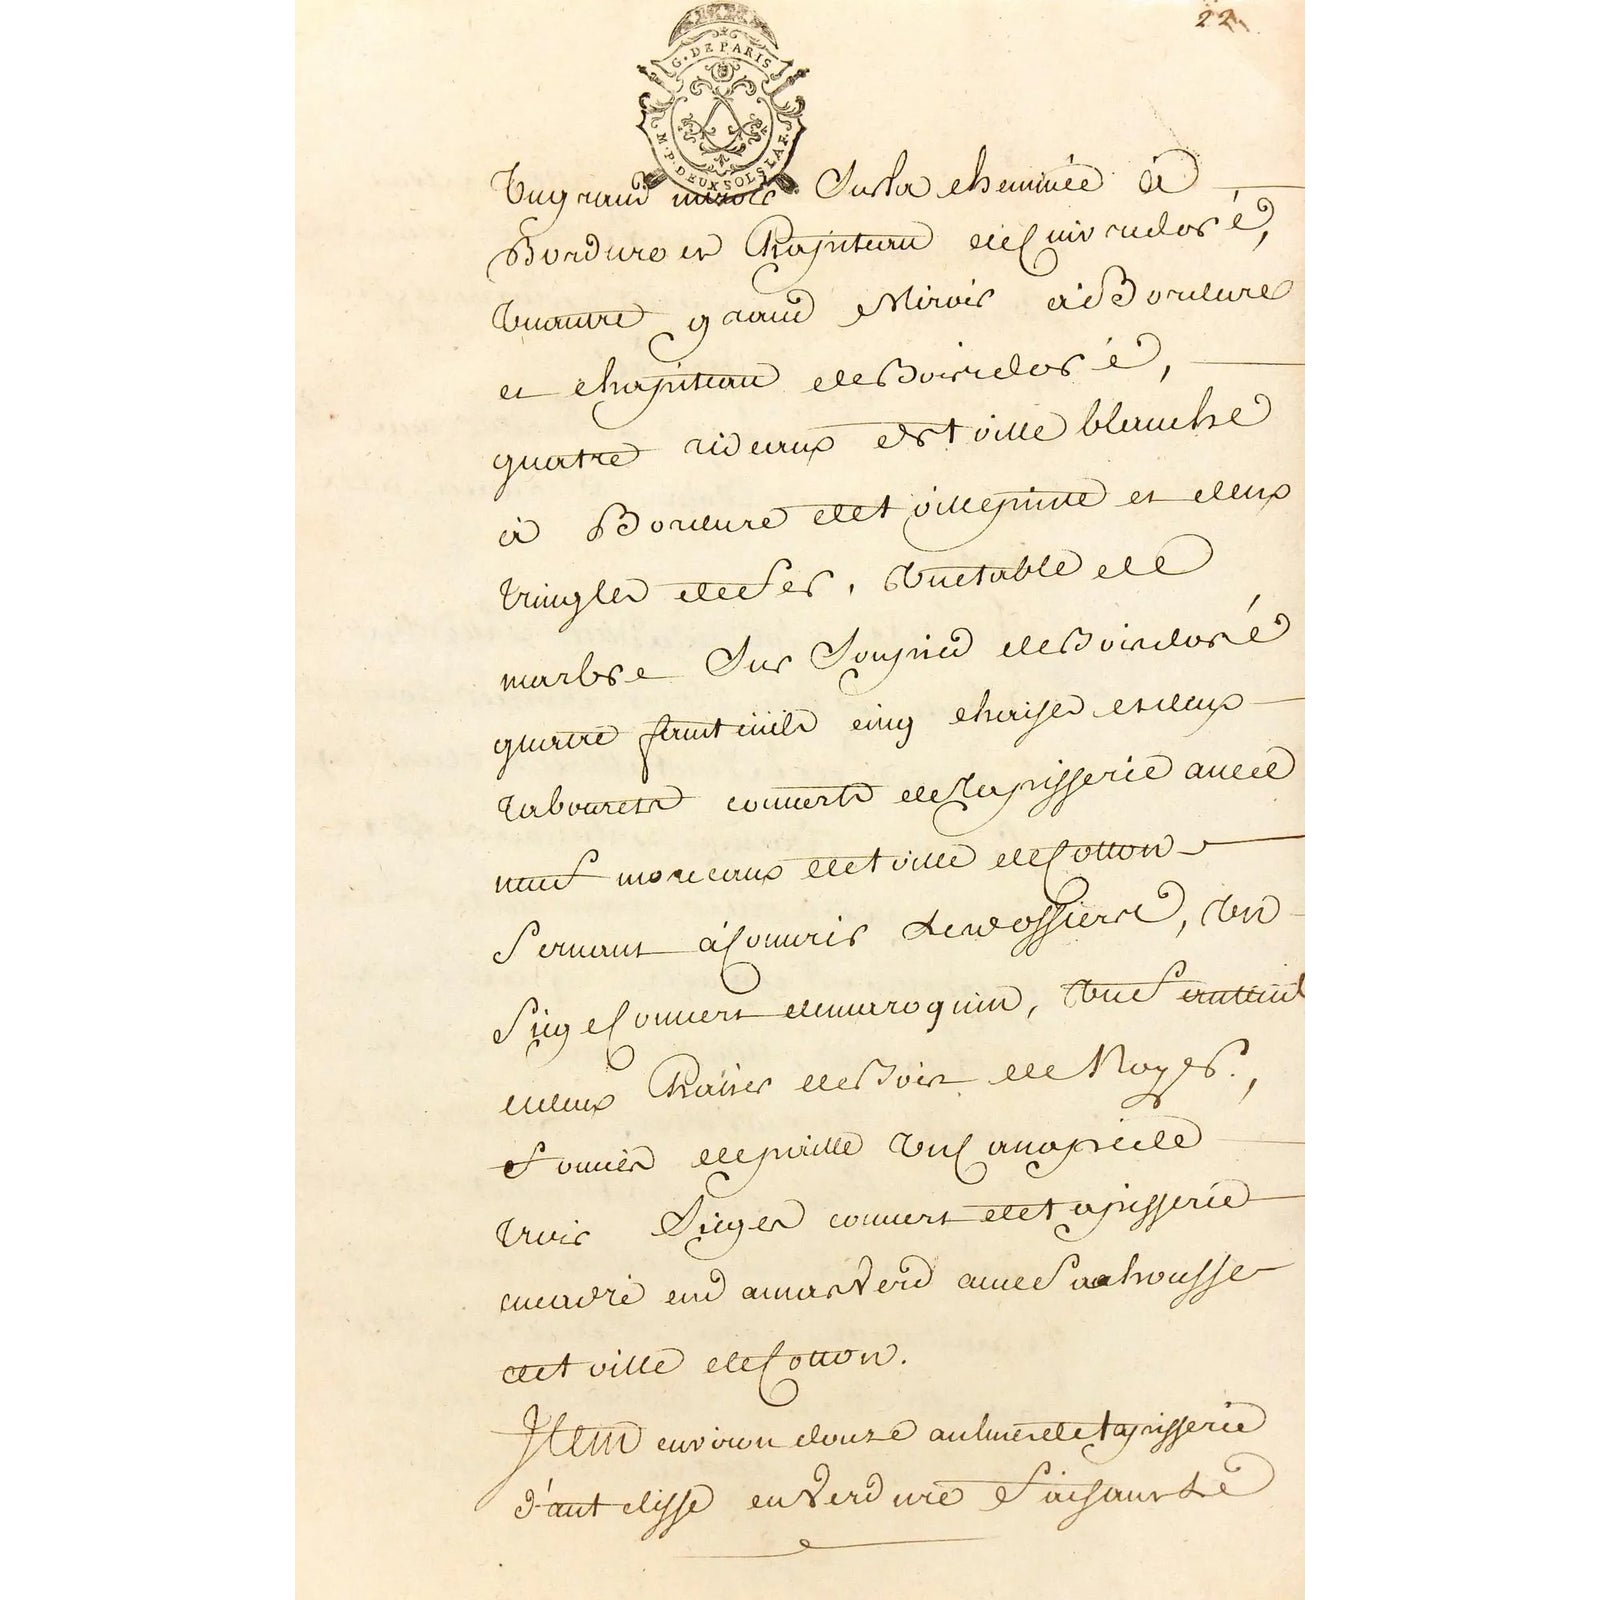 22
G. DE PARIS
M. P. DEUX SOLS LA F.
Un grand miroir Sur la cheminée à
Bordure et Chapiteau de Cuivre doré,
un autre grand Miroir à Bordure
et chapiteau de Bois doré,
quatre rideaux de toille blanche
à Bordure de toille peinte et deux
tringles de fer, une table de
marbre Sur Son pied de Bois doré
quatre fauteüils cinq chaises et deux
tabourets couverts de tapisserie avec
neuf morceaux de toille de Cotton
Servant à Couvrir les dossiers, un
Siege Couvert de maroquin, un fauteuil
et deux Chaises de Bois de Noyer,
foncés de paille un Canapé de
trois Sieges couvert de tapisserie
encadré en damas Verd avec Sa housse
de toille de Cotton.
Item environ douze aulnes de tapisserie
d'autelisse en Verdure faisant le